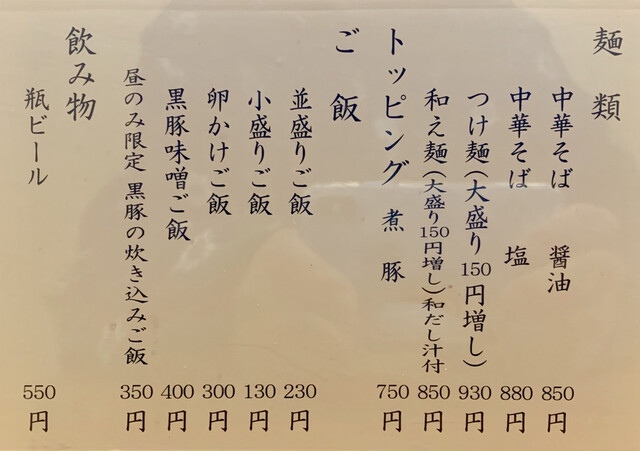 麺類
中華そば 醤油 850円
中華そば 塩 880円
つけ麺(大盛り150円増し) 930円
和え麺(大盛り150円増し)和だし汁付 850円
トッピング 煮豚 750円
ご飯
並盛りご飯 230円
小盛りご飯 130円
卵かけご飯 300円
黒豚味噌ご飯 400円
昼のみ限定 黒豚の炊き込みご飯 350円
飲み物
瓶ビール 550円